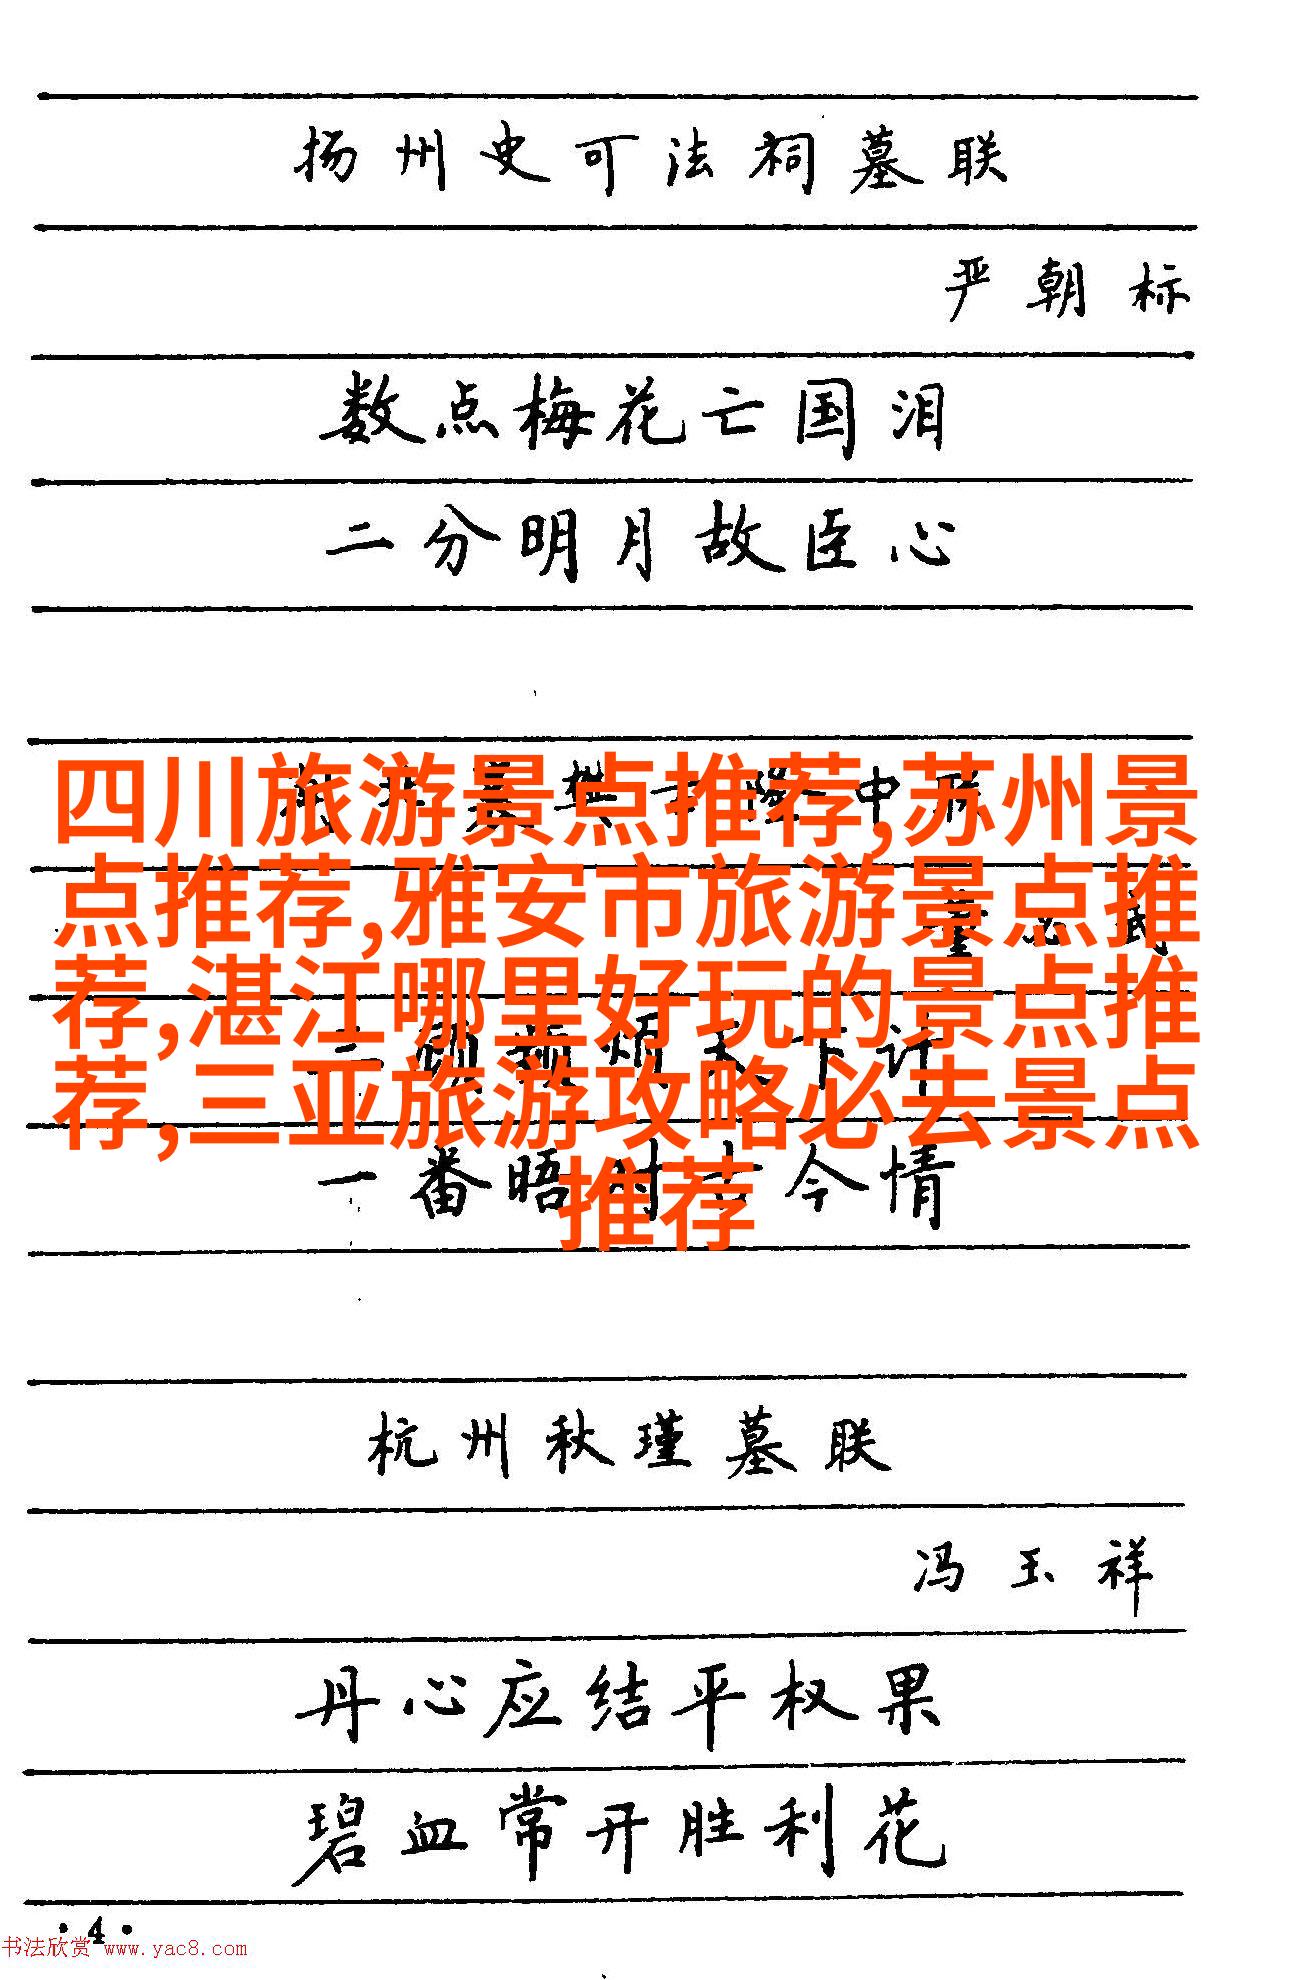 扬州史可法祠墓联
严朝标
数点梅花亡国泪
二分明月故臣心
四川旅游景点推荐,苏州景
点推荐,雅安市旅游景点推
荐,湛江哪里好玩的景点推
荐,三亚旅游攻略必去景点
推荐
襄樊隆中联
董必武
三顾频烦天下计
一番晤对古今情
杭州秋瑾墓联
冯玉祥
丹心应结平权果
碧血常开胜利花
·4·
书法欣赏 www.yac8.com